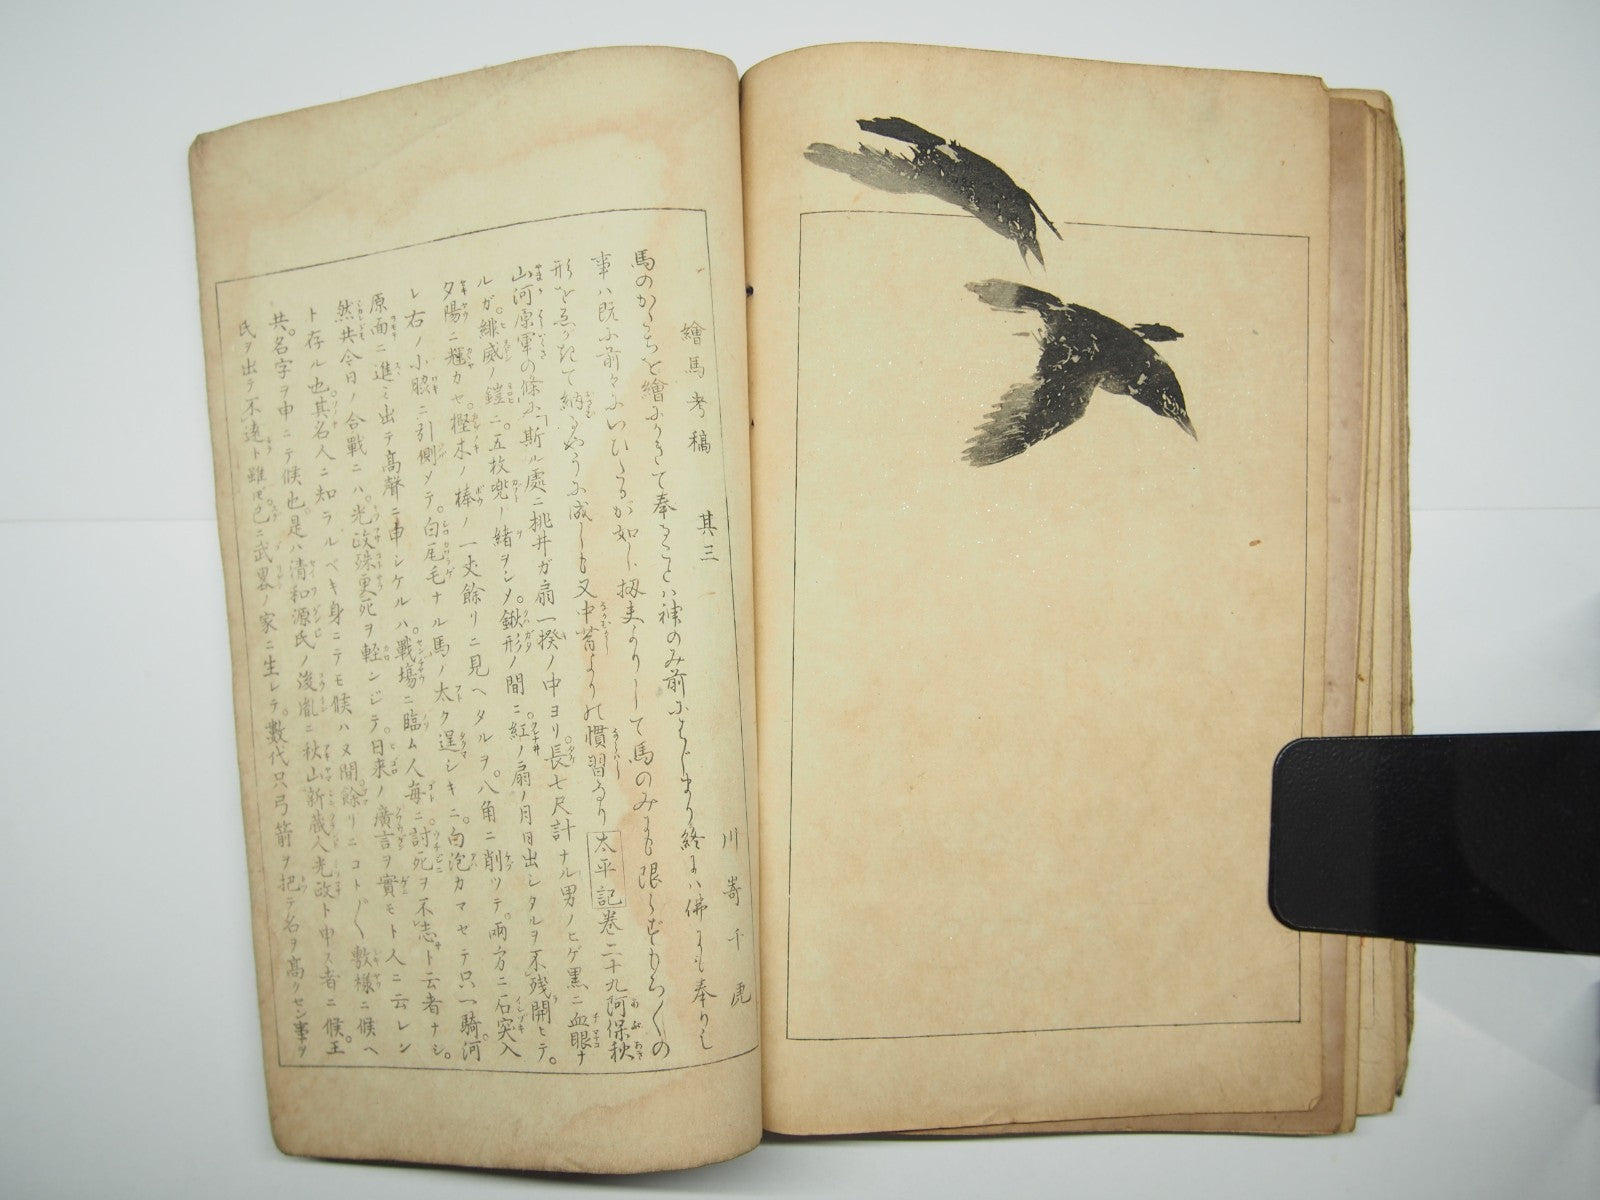 繪馬考稿 其三
川嵜千虎
馬のかたちを繪にかきて奉ることハ神のみ前にはじまり終にハ佛にも奉りし
事ハ既に前々にいひたるが如し扨夫よりして馬のみにも限らずもろ〱の
形を畫がきて納るやうに成しも又中昔よりの慣習なり太平記卷二十九阿保秋
山河原軍の條に「斯ル處ニ桃井ガ扇一揆ノ中ヨリ長七尺計ナル男ノヒゲ黒ニ血眼ナ
ルガ。緋威ノ鎧ニ。五枚兜ノ緒ヲシメ。鍬形ノ間ニ紅ノ扇ノ月日出シタルヲ不殘開ヒテ。
夕陽ニ耀カセ。樫木ノ棒ノ一丈餘リニ見ヘタルヲ。八角ニ削ツテ。兩方ニ石突入
レ右ノ小脇ニ引側メテ。白尾毛ナル馬ノ太ク逞シキニ。白泡カマセテ只一騎河
原面ニ進ミ出テ高聲ニ申シケルハ。戰場ニ臨ム人毎ニ討死ヲ不志ト云者ナシ。
然共今日ノ合戰ニハ。光政殊更死ヲ輕ンジテ。日来ノ廣言ヲ實モト人ニ云レン
ト存ル也其名人ニ知ラルベキ身ニテモ候ハヌ間。餘リニコト〲敷樣ニ候ヘ
共。名字ヲ申ニテ候也。是ハ清和源氏ノ後胤ニ秋山新蔵人光政ト申ス者ニ候。王
氏ヲ出テ不遠ト雖ドモ。已ニ武畧ノ家ニ生レテ。數代只弓箭ヲ把テ名ヲ高クセン事ヲ